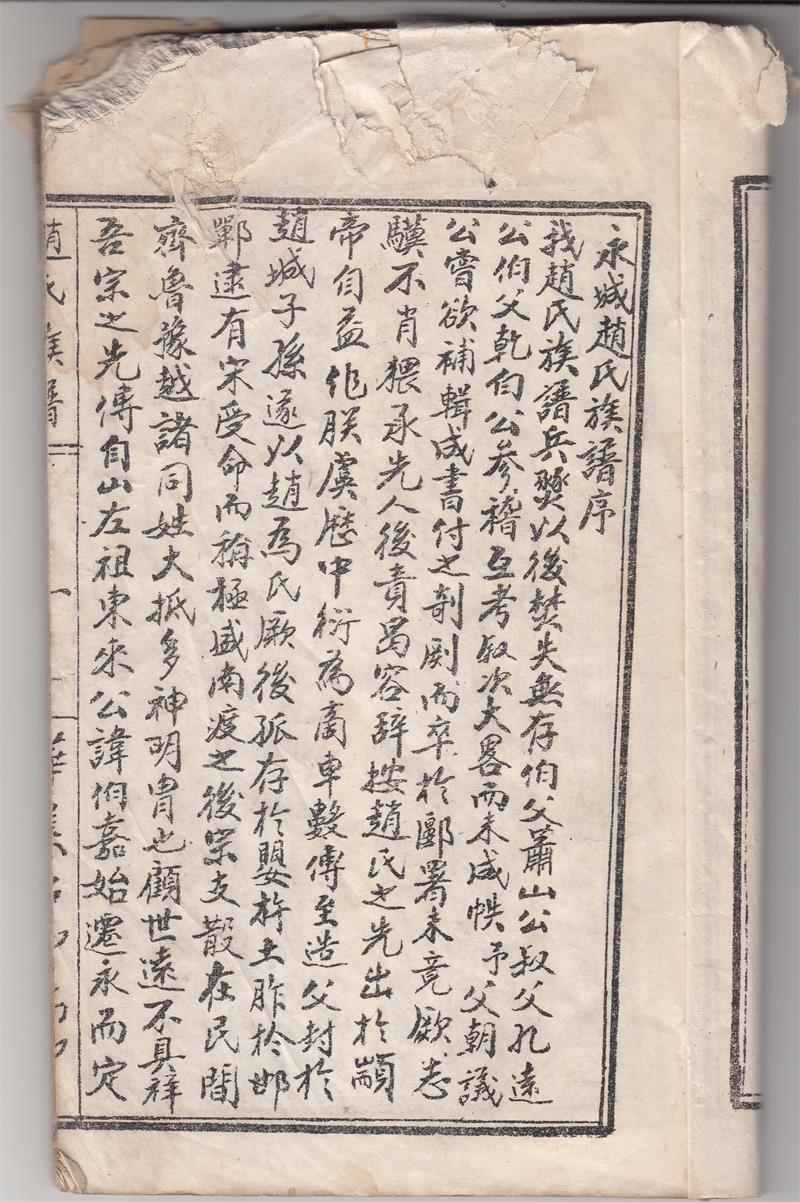 永城趙氏族譜序
我趙氏族譜兵燹以後焚失無存伯父蕭山公叔父孔遠
公伯父乾自公參稽互考叙次大畧而未成帙予父朝議
公嘗欲補輯成書付之剞劂而卒於郾署未竟厥志
驥不肖猥承先人後責曷容辭按趙氏之先出於顓
帝自益作朕虞歷中衍為商車數傳至造父封於
趙城子孫遂以趙為氏厥後孤存於嬰杵土胙於邯
鄲逮有宋受命而稱極盛南渡之後宗支散在民間
齊魯豫越諸同姓大抵多神明胄也顧世遠不具詳
吾宗之先傳自山左祖東來公諱伯嘉始遷永而定
趙氏族譜
一